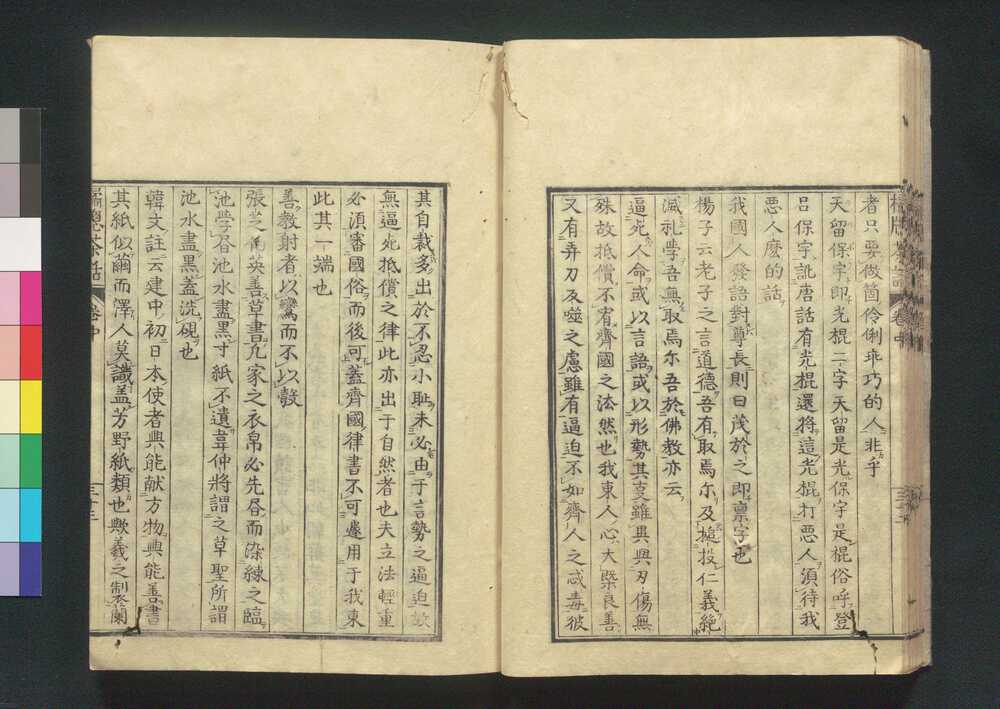 者只要做箇伶俐乖巧的人非乎
天留保字即光棍二字天留是光保字是棍俗呼登
呂保字訛唐話有光棍還將這光棍打惡人須待我
惡人麽的話
我國人發語對尊長則曰茂於之即禀字也
楊子云老子之言道德吾有取焉尓及搥投仁義絶
滅礼學吾無取焉尓吾於佛教亦云
逼死人命或以言語或以形勢其支雖異與刃傷無
殊故抵償不宥齊國之法然也我東人心大槩良善
又有弄刀反噬之慮雖有逼迫不如齊人之惑毒彼
其自裁多出於不忍小耻未必由于言勢之逼迫故
無逼死抵償之律此亦出于自然者也夫立法輕重
必須審國俗而後可蓋齊國律書不可遽用于我東
此其一端也
善教射者以鸞而不以彀
張芝字英善草書凡家之衣帛必先昏而染練之臨
池學昏池水盡黒寸紙不遺韋仲將謂之草聖所謂
池水盡黒蓋洗硯也
韓文註云建中初日本使者興能献方物興能善書
其紙似繭而澤人莫識盖芳野紙類也歟羲之製蘭
橘牕茶話
卷中